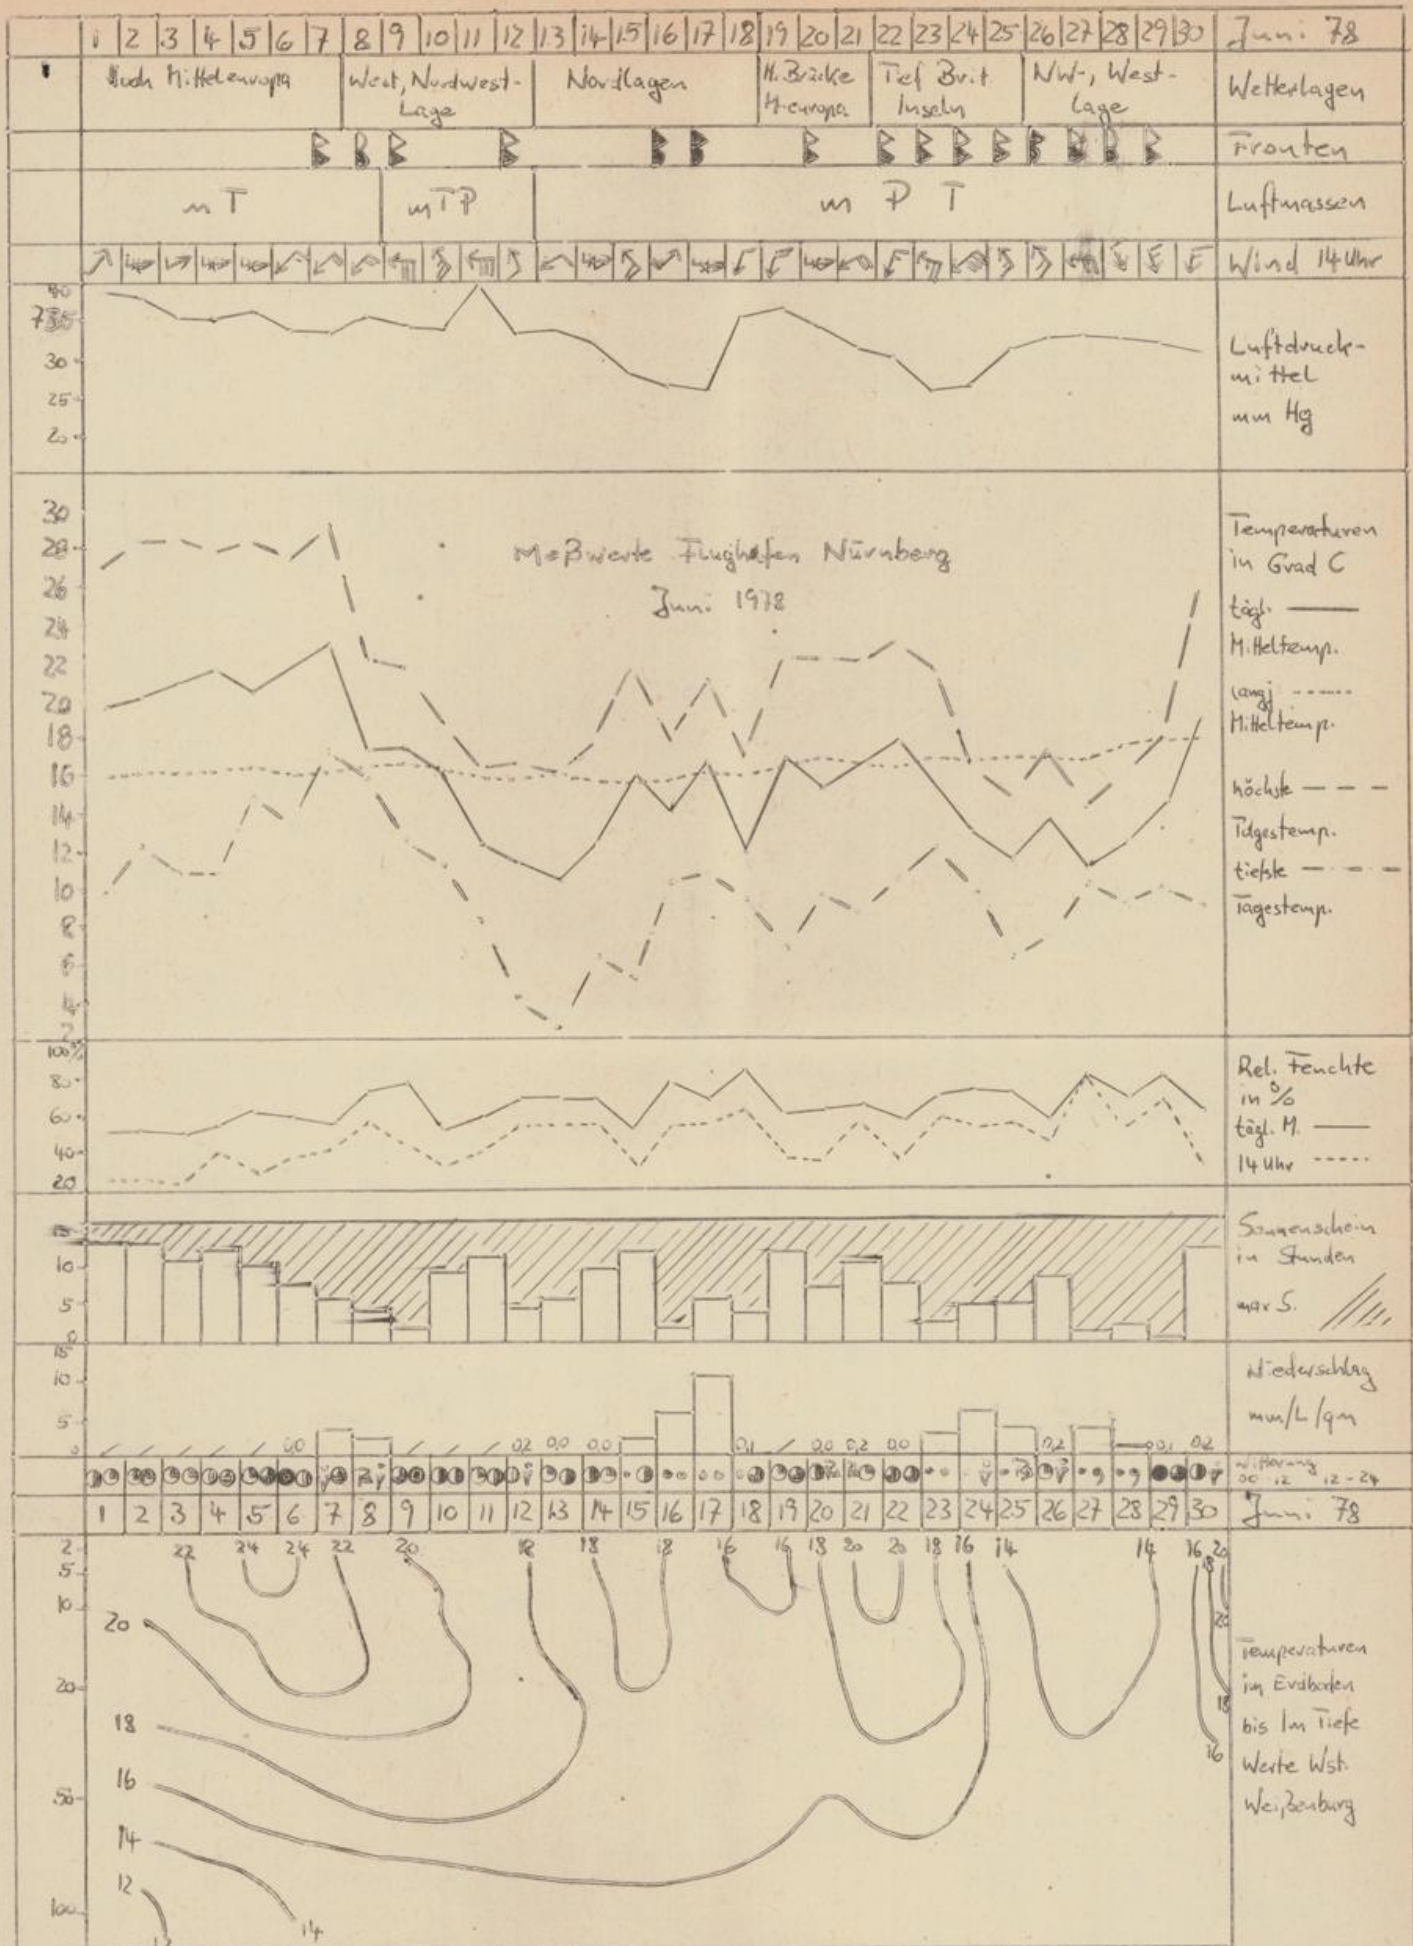 1 2 3 4 5 6 7 8 9 10 11 12 13 14 15 16 17 18 19 20 21 22 23 24 25 26 27 28 29 30 Juni 78
Hoch Mitteleuropa West, Nordwest- Nordlagen H. Brücke Tief Brit. NW-, West- Wetterlagen
Lage M-europa Inseln Lage
Fronten
mT mTP m P T Luftmassen
Wind 14 Uhr
40
735
30
25
20
Luftdruck-
mittel
mm Hg
30
28
26
24
22
20
18
16
14
12
10
8
6
4
2
Meßwerte Flughafen Nürnberg
Juni 1978
Temperaturen
in Grad C
tägl.
Mitteltemp.
langj
Mitteltemp.
höchste
Tagestemp.
tiefste
Tagestemp.
100%
80
60
40
20
Rel. Feuchte
in %
tägl. M.
14 Uhr
15
10
5
0
Sonnenschein
in Stunden
max S.
15
10
5
0
0,0 0,2 0,0 0,0 0,1 0,0 0,2 0,0 0,2 0,1 0,2
Niederschlag
mm/L/qm
Witterung
00 12 12-24
1 2 3 4 5 6 7 8 9 10 11 12 13 14 15 16 17 18 19 20 21 22 23 24 25 26 27 28 29 30 Juni 78
2
5
10
20
50
100
22 24 24 22 20 18 18 18 16 16 18 20 20 18 16 14 14 16 18 20
20
18
16
14
12
14
20
18
16
Temperaturen
im Erdboden
bis 1m Tiefe
Werte Wst.
Weißenburg